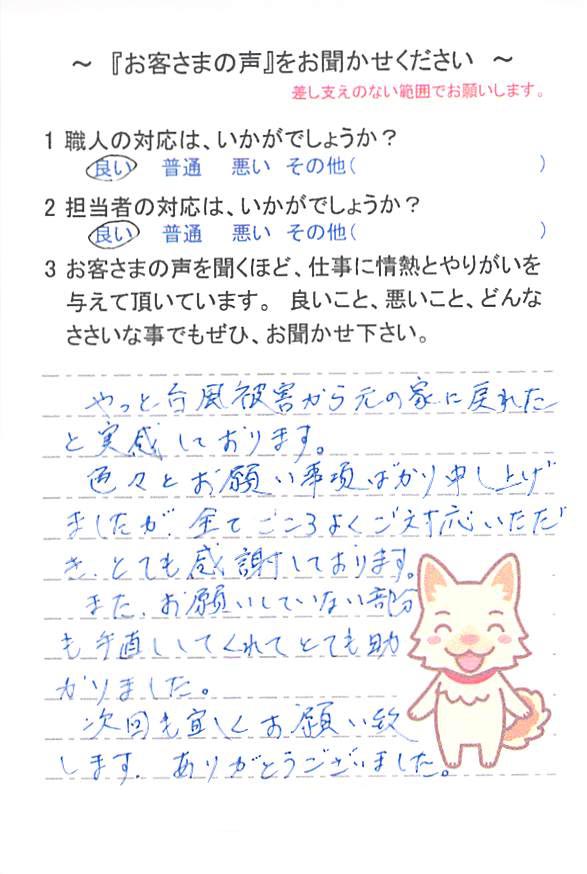 ～ 『お客さまの声』をお聞かせください ～
差し支えのない範囲でお願いします。
1 職人の対応は、いかがでしょうか？
良い 普通 悪い その他( )
2 担当者の対応は、いかがでしょうか？
良い 普通 悪い その他( )
3 お客さまの声を聞くほど、仕事に情熱とやりがいを
与えて頂いています。 良いこと、悪いこと、どんな
ささいな事でもぜひ、お聞かせ下さい。
やっと台風被害から元の家に戻れた
と実感しております。
色々とお願い事項ばかり申し上げ
ましたが、全てこころよくご対応いただ
き、とても感謝しております。
また、お願いしていない部分
も手直ししてくれてとても助
かりました。
次回も宜しくお願い致
します。ありがとうございました。